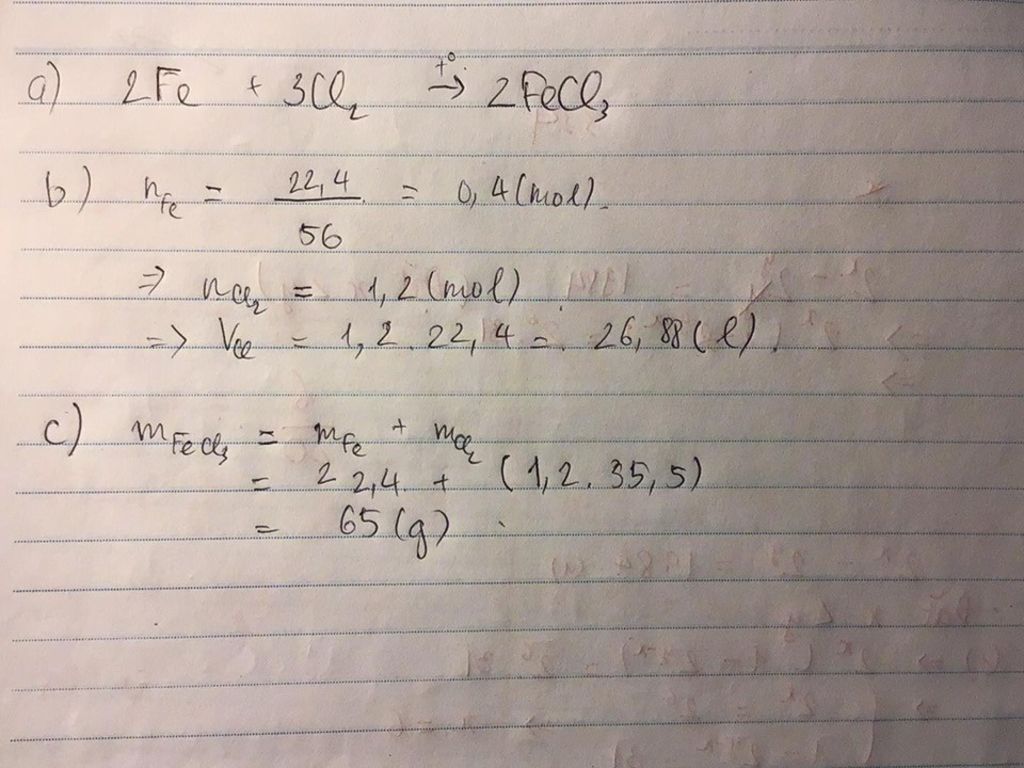 a) 2Fe + 3Cl₂ →(t°) 2FeCl₃
b) n_Fe = 22,4/56 = 0,4 (mol).
=> n_Cl₂ = 1,2 (mol)
=> V_Cl = 1,2 . 22,4 = 26,88 (l).
c) m_FeCl₃ = m_Fe + m_Cl₂
= 22,4 + (1,2 . 35,5)
= 65 (g).